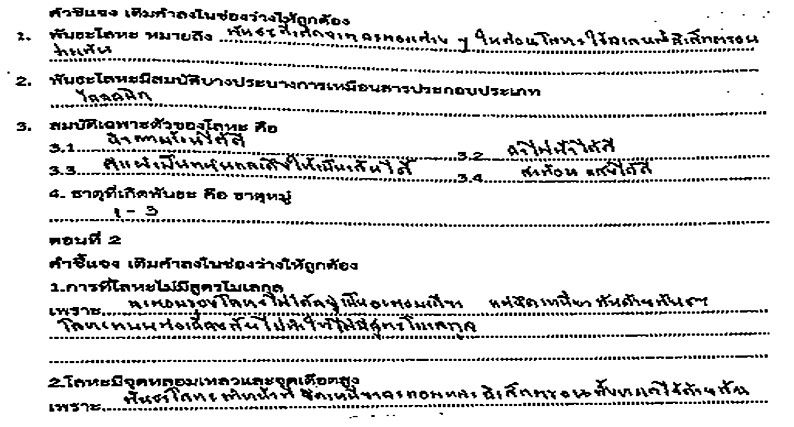 คำชี้แจง เติมคำลงในช่องว่างให้ถูกต้อง
1. พันธะโลหะ หมายถึง พันธะที่เกิดจากอะตอมต่าง ๆ ในก้อนโลหะใช้เวเลนซ์อิเล็กตรอน
ร่วมกัน
2. พันธะโลหะมีสมบัติบางประบางการเหมือนสารประกอบประเภท
ไอออนิก
3. สมบัติเฉพาะตัวของโลหะ คือ
3.1 นำความร้อนได้ดี 3.2 นำไฟฟ้าได้ดี
3.3 ตีแผ่เป็นแผ่นและดึงให้เป็นเส้นได้ 3.4 สะท้อนแสงได้ดี
4. ธาตุที่เกิดพันธะ คือ ธาตุหมู่
1 - 3
ตอนที่ 2
คำชี้แจง เติมคำลงในช่องว่างให้ถูกต้อง
1.การที่โลหะไม่มีสูตรโมเลกุล
เพราะ อะตอมของโลหะไม่ได้อยู่เป็นอะตอมเดี่ยว แต่ยึดเหนี่ยวกันด้วยพันธะ
โลหะแบบต่อเนื่องกันไปทำให้ไม่มีสูตรโมเลกุล
2.โลหะมีจุดหลอมเหลวและจุดเดือดสูง
เพราะ พันธะโลหะทำหน้าที่ ยึดเหนี่ยวอะตอมและอิเล็กตรอนทั้งหมดไว้ด้วยกัน